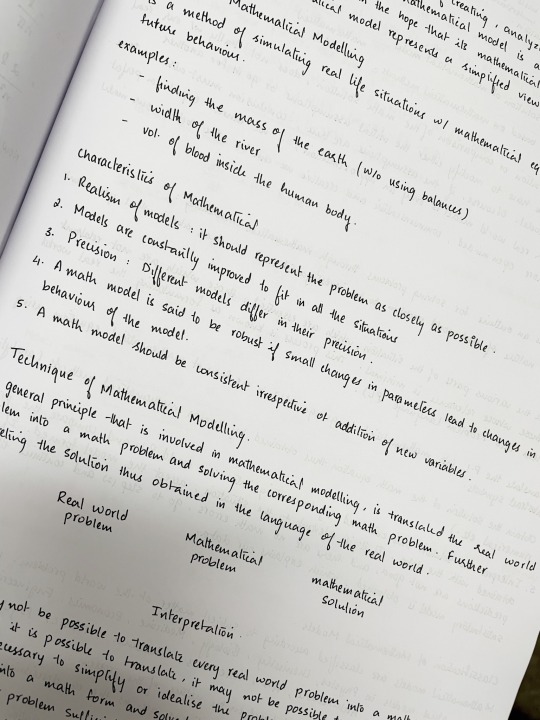 creating, analyzi
the hope that its mathematical
Mathematical model is a
ical model represents a simplified view
Mathematical Modelling
is a method of simulating real life situations w/ mathematical eq
future behaviour.
examples:
- finding the mass of the earth (w/o using balances)
- width of the river
- vol. of blood inside the human body.
Characteristics of Mathematical
1. Realism of models : it should represent the problem as closely as possible.
2. Models are constantly improved to fit in all the situations
3. Precision : Different models differ in their precision.
4. A math model is said to be robust if small changes in parameters lead to changes in
behaviour of the model.
5. A math model should be consistent irrespective of addition of new variables.
Technique of Mathematical Modelling.
general principle that is involved in mathematical modelling, is translated the real world
lem into a math problem and solving the corresponding math problem. Further
eting the solution thus obtained in the language of the real world.
Real world
problem
Mathematical
problem
mathematical
solution
Interpretation.
y not be possible to translate every real world problem into a math
it is possible to translate, it may not be possible t
cessary to simplify or idealise the proble
into a math form and solve
problem